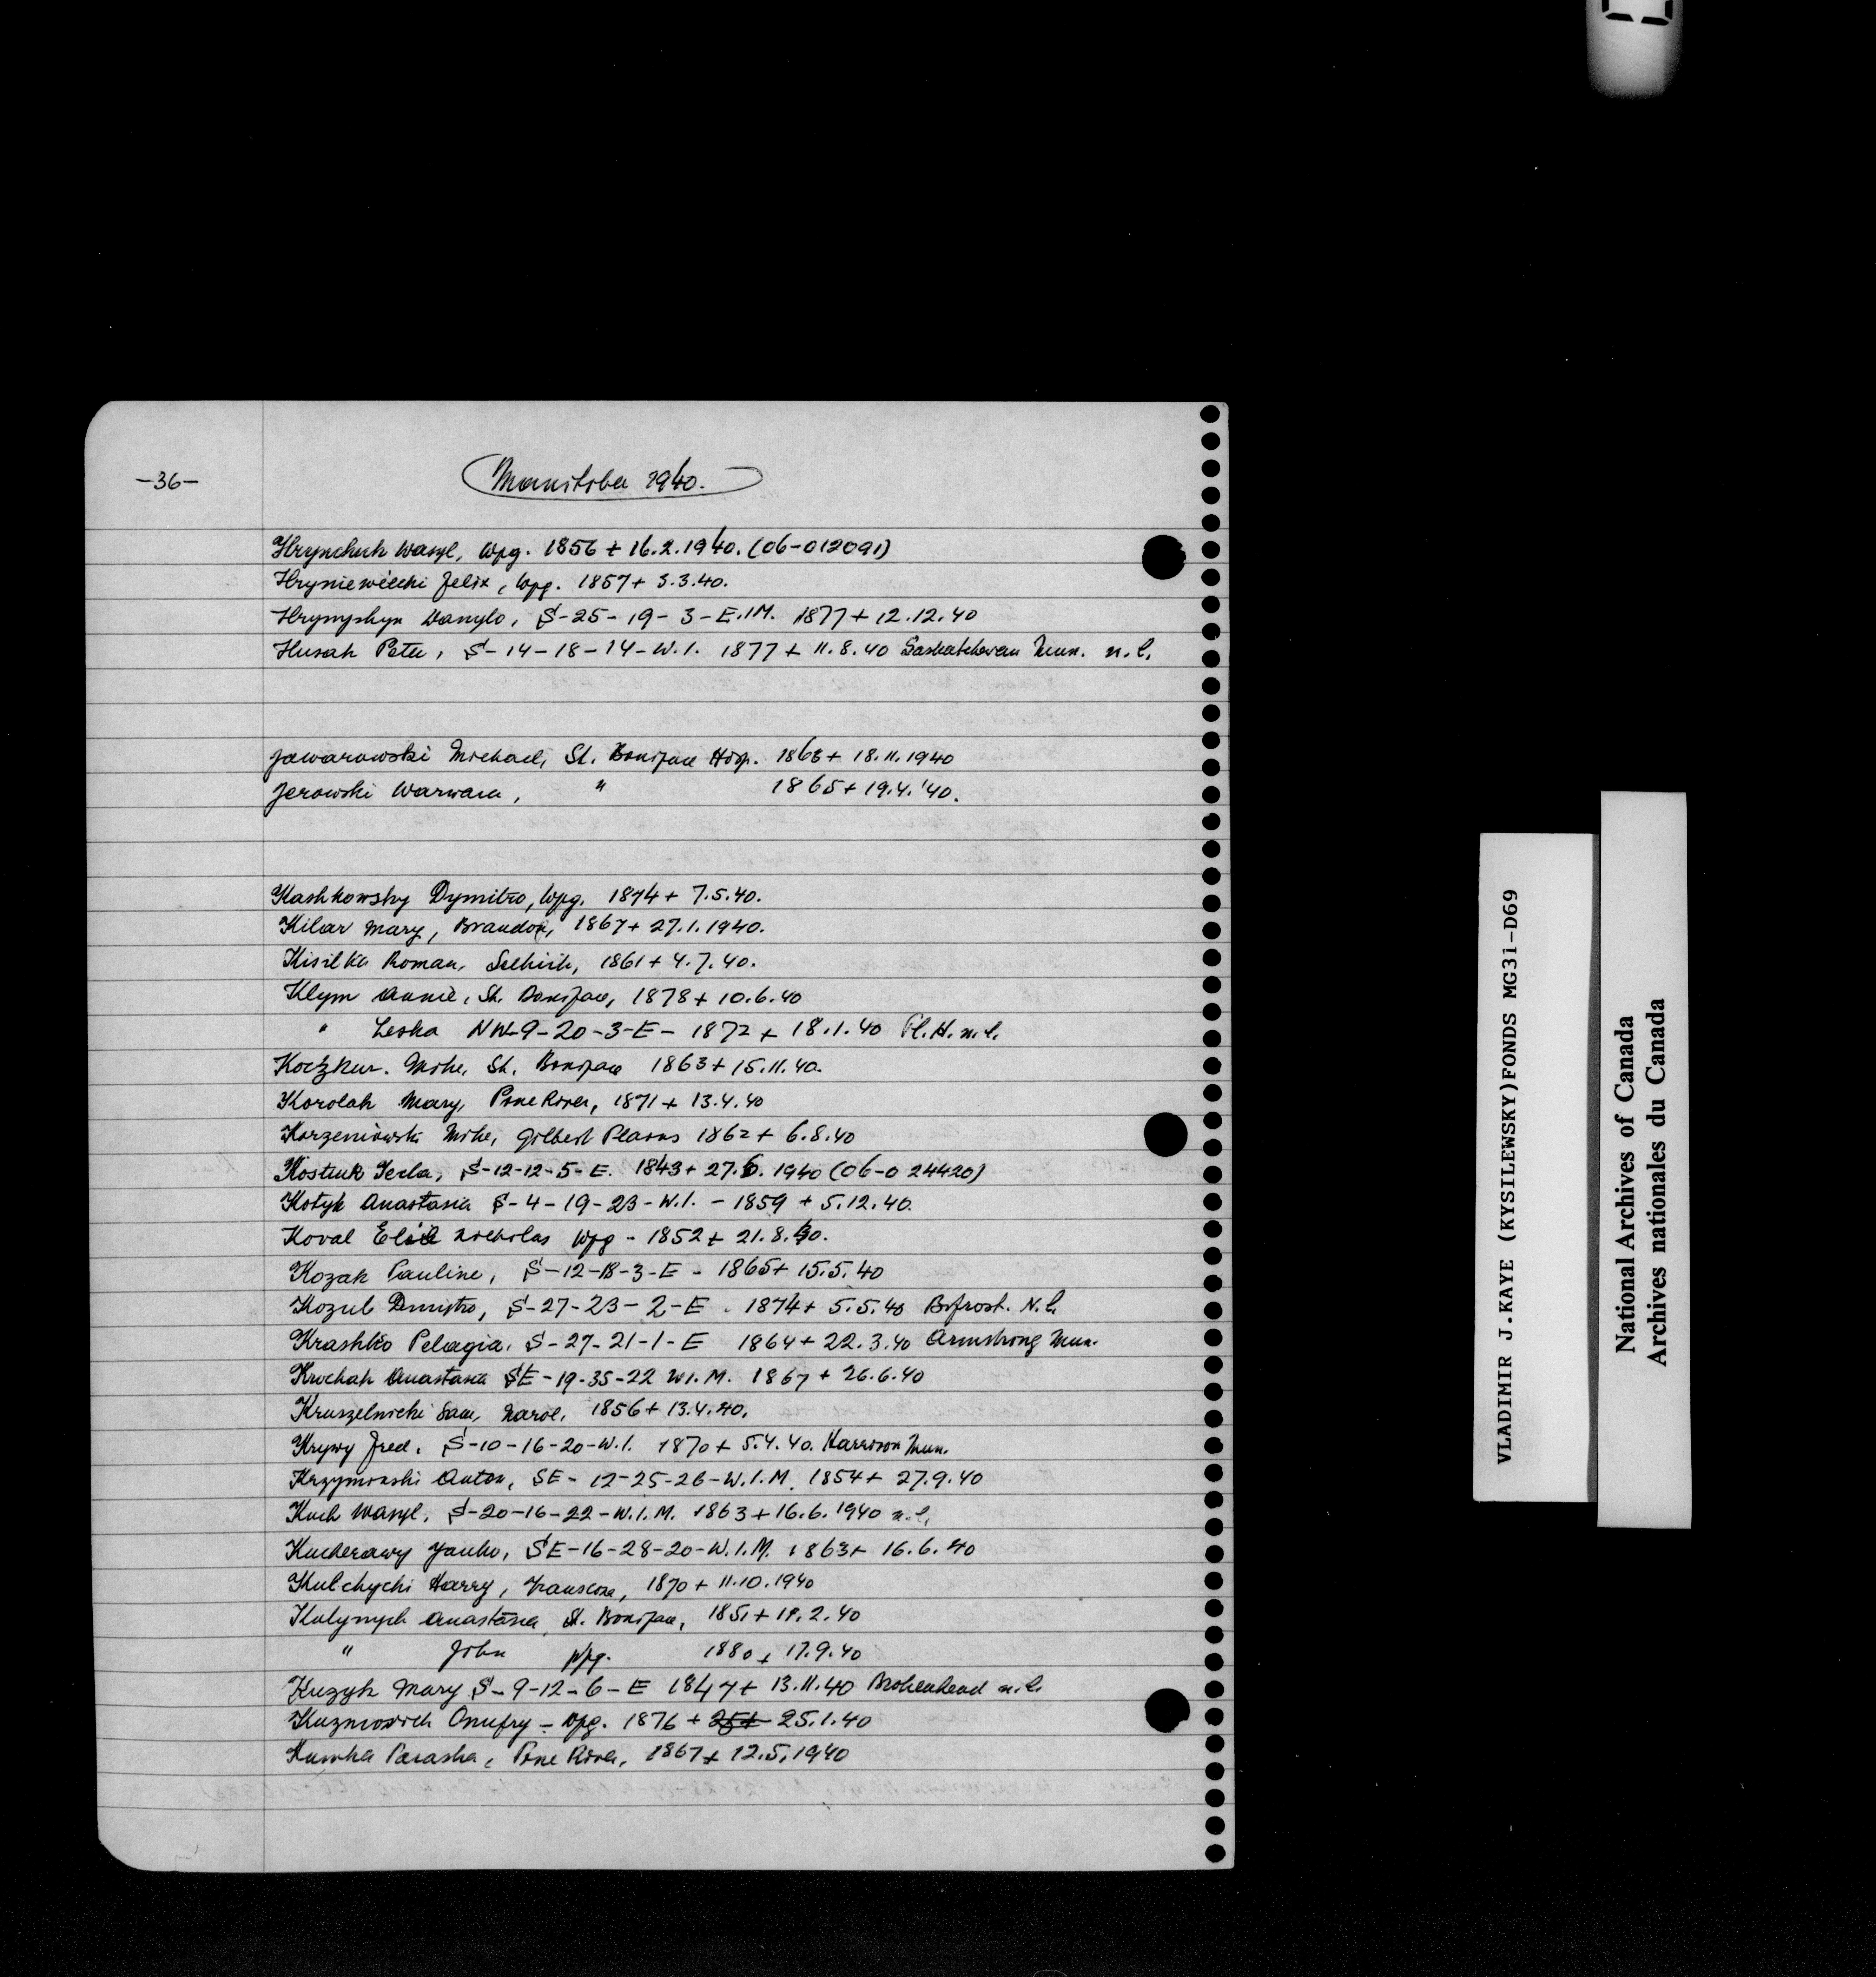 -36-
Manitoba 1940.
Hrynchuk Wasyl, Wpg. 1856 + 16.2.1940. (06-012091)
Hryniewiecki Felix, Wpg. 1857 + 3.3.40.
Hrynyshyn Danylo, S-25-19-3-E.1M. 1877 + 12.12.40
Husak Peter, S-14-18-14-W.1. 1877 + 11.8.40 Saskatchewan Mun. n.l.
Jawarowski Michael, St. Boniface Hosp. 1863 + 18.11.1940
Jerowski Warwara, " 1865 + 19.4.'40.
Kashkowsky Dymitro, Wpg. 1874 + 7.5.40.
Kilar Mary, Brandon, 1867 + 27.1.1940.
Kisilka Roman, Selkirk, 1861 + 4.7.40.
Klym Annie, St. Boniface, 1878 + 10.6.40
" Leska NW-9-20-3-E- 1872 + 18.1.40 Pl.H. n.l.
Koczkur. Mike, St. Boniface 1863 + 15.11.40.
Korolak Mary, Pine River, 1871 + 13.4.40
Korzeniowski Mike, Gilbert Plains 1862 + 6.8.40
Kostiuk Tecla, S-12-12-5-E. 1843 + 27.6.1940 (06-024420)
Kotyk Anastasia S-4-19-23-W.1. - 1859 + 5.12.40.
Koval Nicholas Wpg - 1852 + 21.8.40.
Kozak Pauline, S-12-18-3-E - 1865 + 15.5.40
Kozub Dmistro, S-27-23-2-E. 1874 + 5.5.40 Bifrost. N.l.
Krashko Pelagia, S-27-21-1-E 1864 + 22.3.40 Armstrong Mun.
Krochak Anastasia SE-19-35-22 W1.M. 1867 + 26.6.40
Kruszelnicki Sam, Narol, 1856 + 13.4.40.
Krywy Fred, S-10-16-20-W.1. 1870 + 5.4.40. Harrison Mun.
Krzyminski Anton, SE-12-25-26-W.1.M. 1854 + 27.9.40
Kuch Wasyl, S-20-16-22-W.1.M. 1863 + 16.6.1940 n.l.
Kucherawy Yanko, SE-16-28-20-W.1.M. 1863 + 16.6.40
Kulchycki Harry, Transcona, 1870 + 11.10.1940
Kulynych Anastasia, St. Boniface, 1851 + 18.2.40
" John Wpg. 1880 + 17.9.40
Kuzyk Mary S-9-12-6-E 1847 + 13.11.40 Brokenhead n.l.
Kuzmowich Onufry - Wpg. 1876 + 25+ 25.1.40
Kuwka Paraska, Pine River, 1867 + 12.5.1940
VLADIMIR J.KAYE (KYSILEWSKY)FONDS MG31-D69
National Archives of Canada
Archives nationales du Canada